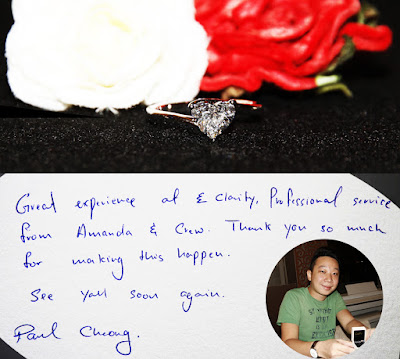 Great experience at E Clarity. Professional service
from Amanda & Crew. Thank you so much
for making this happen.
See yall soon again.
Paul Cheong.